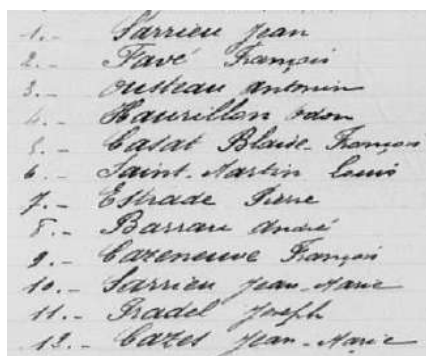 1. - Sarrieu Jean
2. - Favé François
3. - Ousteau Antonin
4. - Haurillon Odon
5. - Catat Blaise-François
6. - Saint-Martin Louis
7. - Estrade Pierre
8. - Barrau André
9. - Cazeneuve François
10. - Sarrieu Jean-Marie
11. - Pradel Joseph
12. - Cazes Jean-Marie